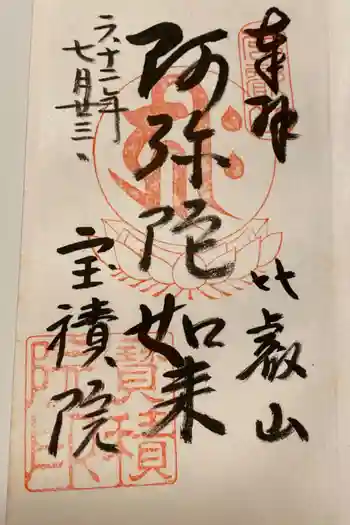 奉拝
比叡山
阿弥陀如来
六十二年
七月廿三
宝積院
寶積
院印